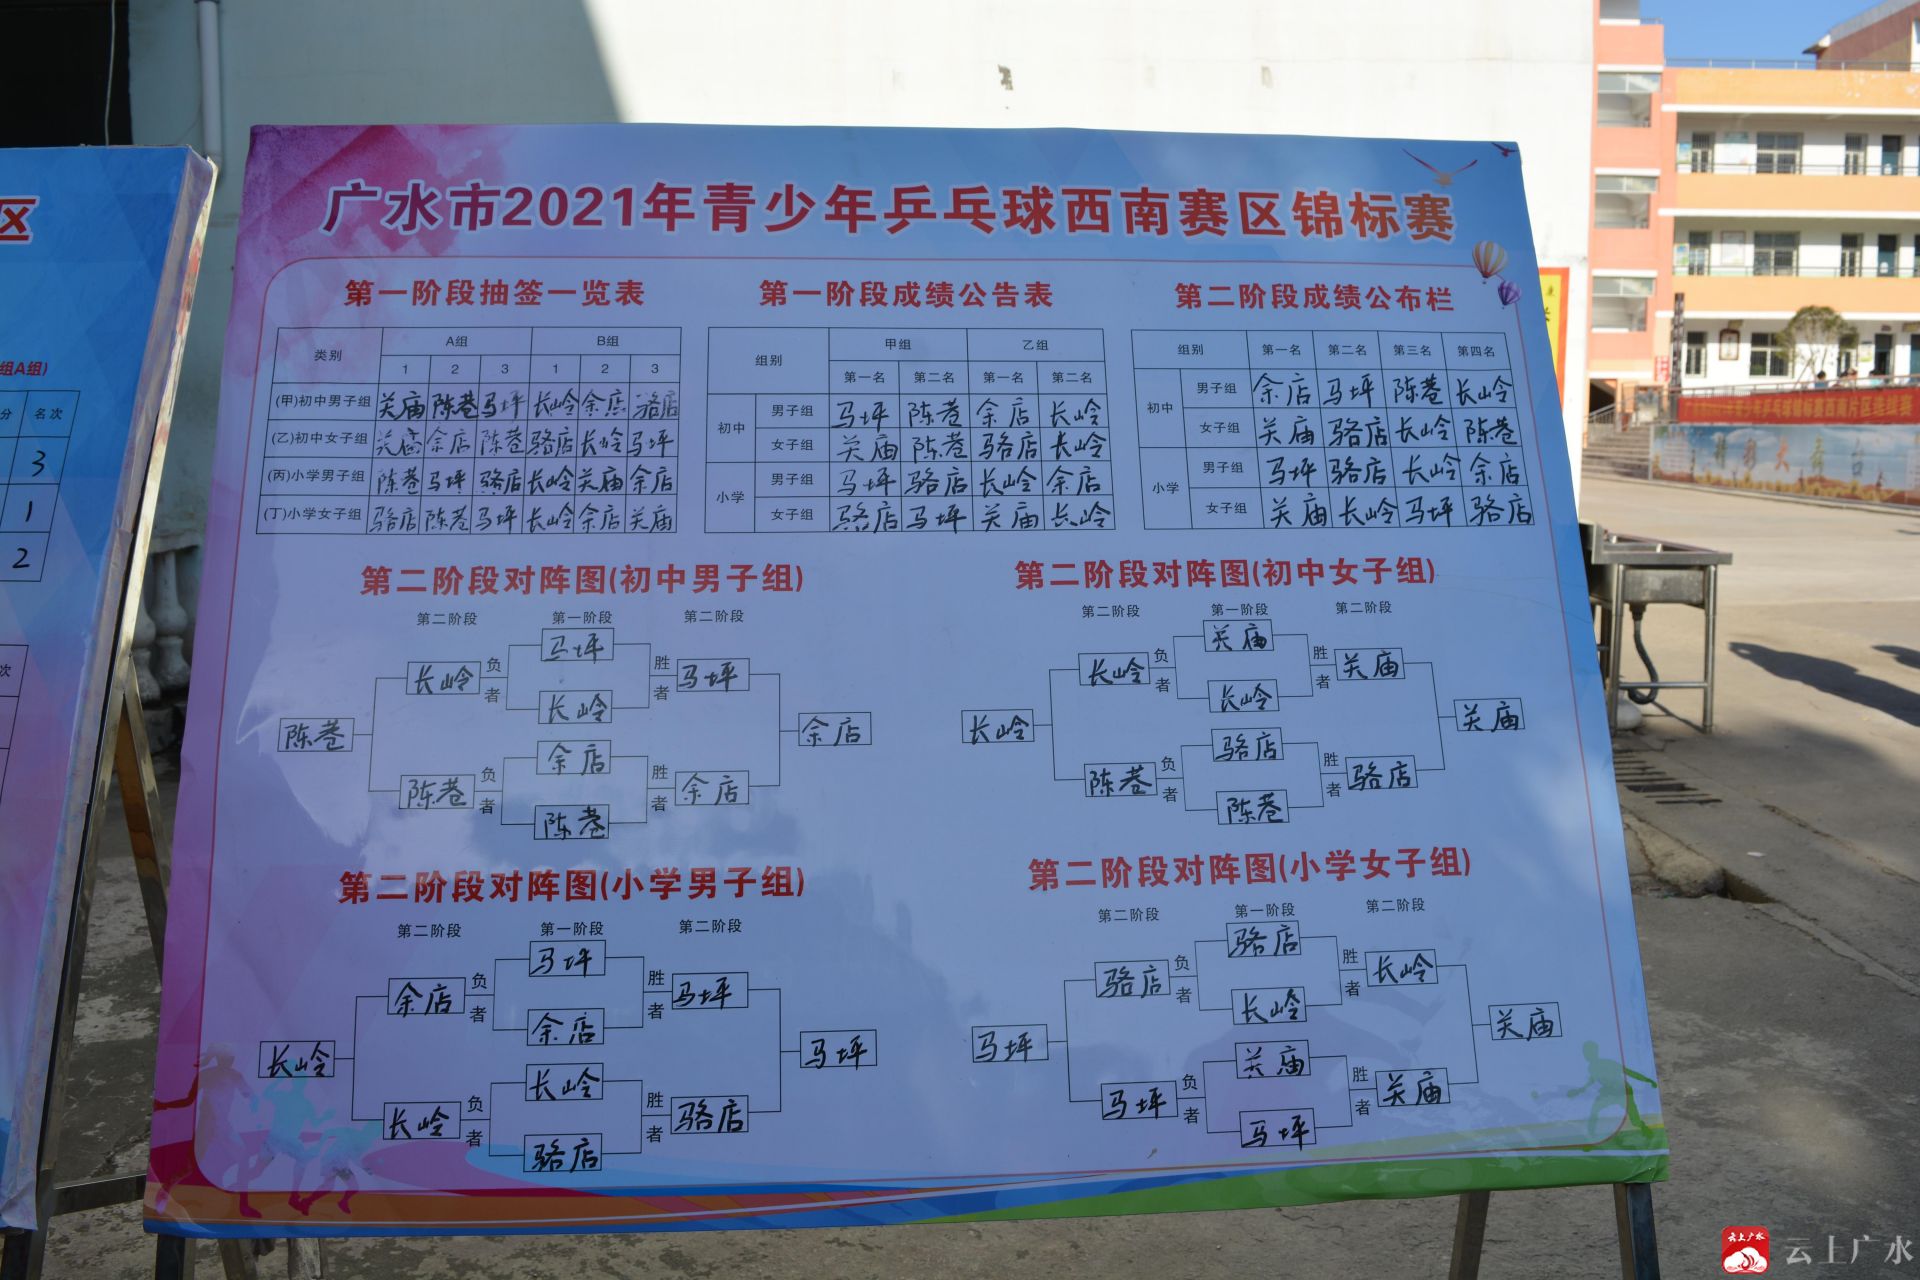 广水市2021年青少年乒乓球西南赛区锦标赛
第一阶段抽签一览表
类别 A组 B组
1 2 3 1 2 3
(甲)初中男子组 关庙 陈巷 马坪 长岭 余店 骆店
(乙)初中女子组 关庙 余店 陈巷 骆店 长岭 马坪
(丙)小学男子组 陈巷 马坪 骆店 长岭 关庙 余店
(丁)小学女子组 骆店 陈巷 马坪 长岭 余店 关庙
第一阶段成绩公告表
组别 甲组 乙组
第一名 第二名 第一名 第二名
初中 男子组 马坪 陈巷 余店 长岭
女子组 关庙 陈巷 骆店 长岭
小学 男子组 马坪 骆店 长岭 余店
女子组 骆店 马坪 关庙 长岭
第二阶段成绩公布栏
组别 第一名 第二名 第三名 第四名
初中 男子组 余店 马坪 陈巷 长岭
女子组 关庙 骆店 长岭 陈巷
小学 男子组 马坪 骆店 长岭 余店
女子组 关庙 长岭 马坪 骆店
第二阶段对阵图(初中男子组)
第二阶段 第一阶段 第二阶段
马坪
长岭 负者 胜者 马坪
长岭
陈巷 余店
余店
陈巷 负者 胜者 余店
陈巷
第二阶段对阵图(初中女子组)
第二阶段 第一阶段 第二阶段
关庙
长岭 负者 胜者 关庙
长岭
长岭 关庙
骆店
陈巷 负者 胜者 骆店
陈巷
第二阶段对阵图(小学男子组)
第二阶段 第一阶段 第二阶段
马坪
余店 负者 胜者 马坪
余店
长岭 马坪
长岭
长岭 负者 胜者 骆店
骆店
第二阶段对阵图(小学女子组)
第二阶段 第一阶段 第二阶段
骆店
骆店 负者 胜者 长岭
长岭
马坪 关庙
关庙
马坪 负者 胜者 关庙
马坪
区
组A组)
分 名次
3
1
2
次
云上广水
云上广水